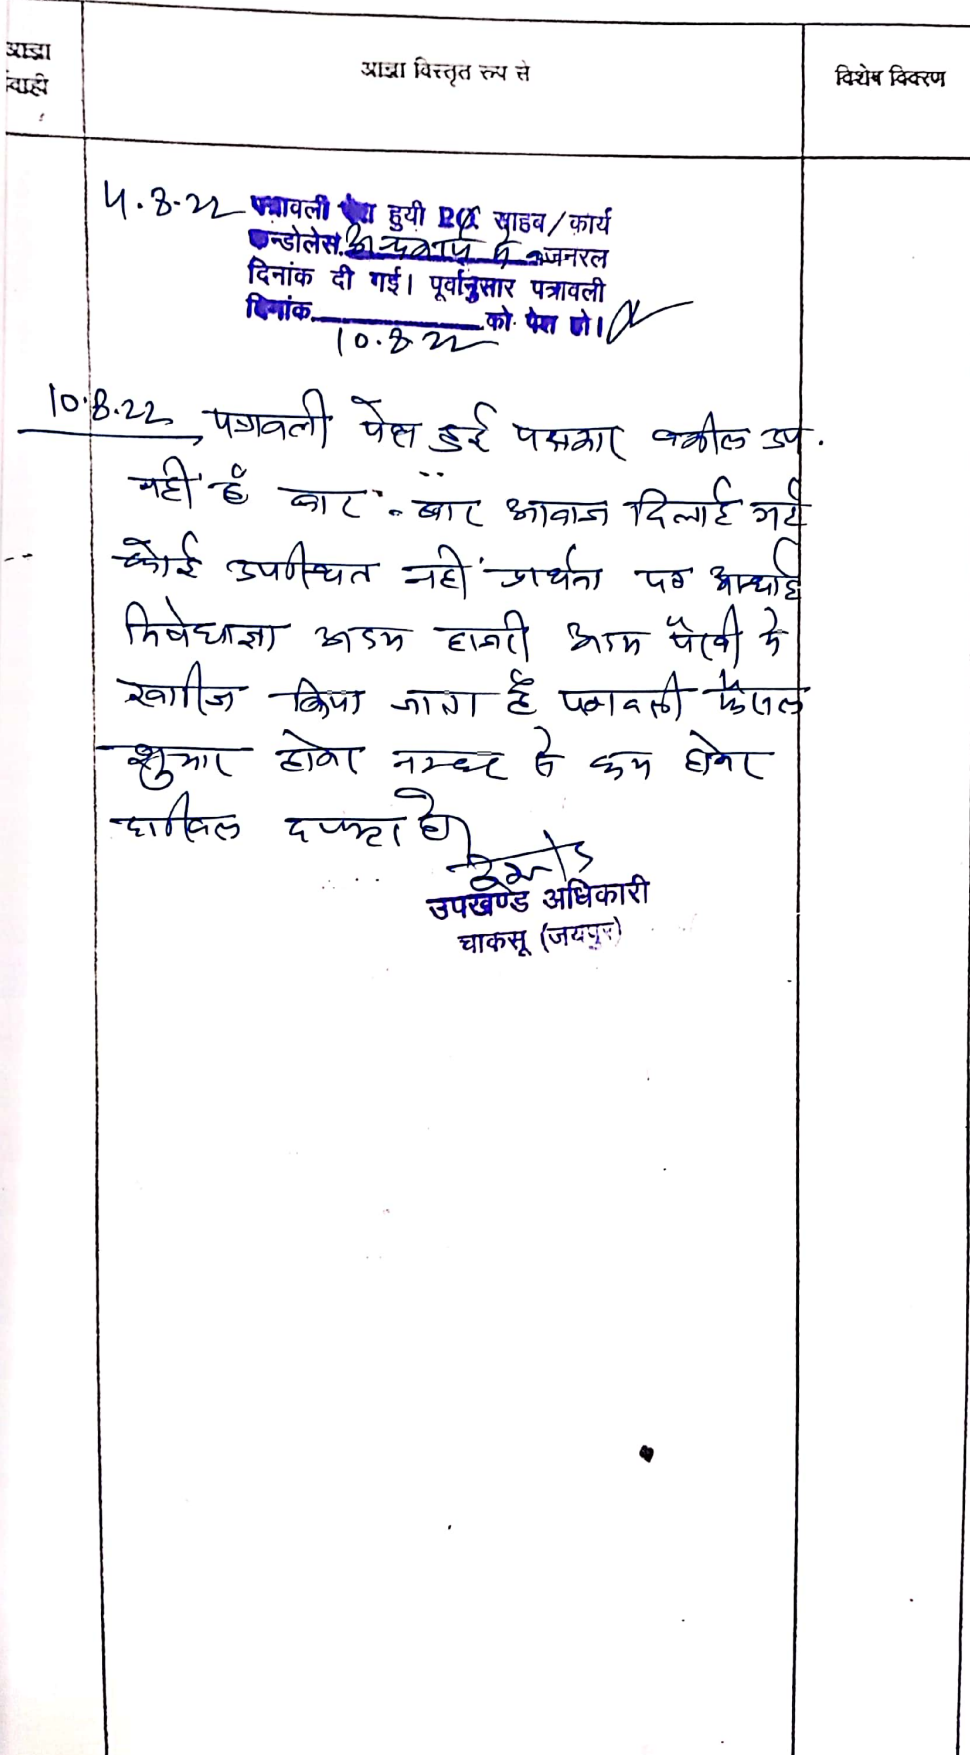 आज्ञा
वाही
आज्ञा विस्तृत रुप से
विशेष विवरण
4.8.22 पत्रावली पेश हुयी साहब/कार्य
जनरल
दिनांक दी गई। पूर्वानुसार पत्रावली
दिनांक को पेश हो।
10.8.22
10.8.22 पत्रावली पेश हुई पक्षकार वकील उप.
नही है बार-बार आवाज दिलाई गई
कोई उपस्थित नही प्रार्थना पत्र अस्थाई
निषेधाज्ञा अदम हाजरी अदम पैरवी में
खारीज किया जाता है पत्रावली फैसल
शुमार होकर नम्बर से कम होकर
दाखिल दफ्तर हो।
उपखण्ड अधिकारी
चाकसू (जयपुर)